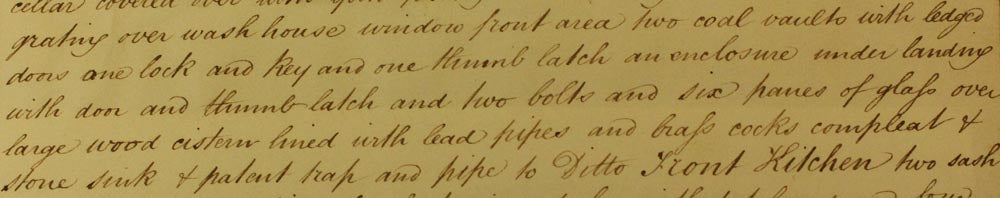 cellar covered over with
grating over wash house window front area two coal vaults with ledged
doors one lock and key and one thumb latch an enclosure under landing
with door and thumb latch and two bolts and six panes of glass over
large wood cistern lined with lead pipes and brass cocks compleat &
stone sink & patent trap and pipe to Ditto Front Kitchen two sash